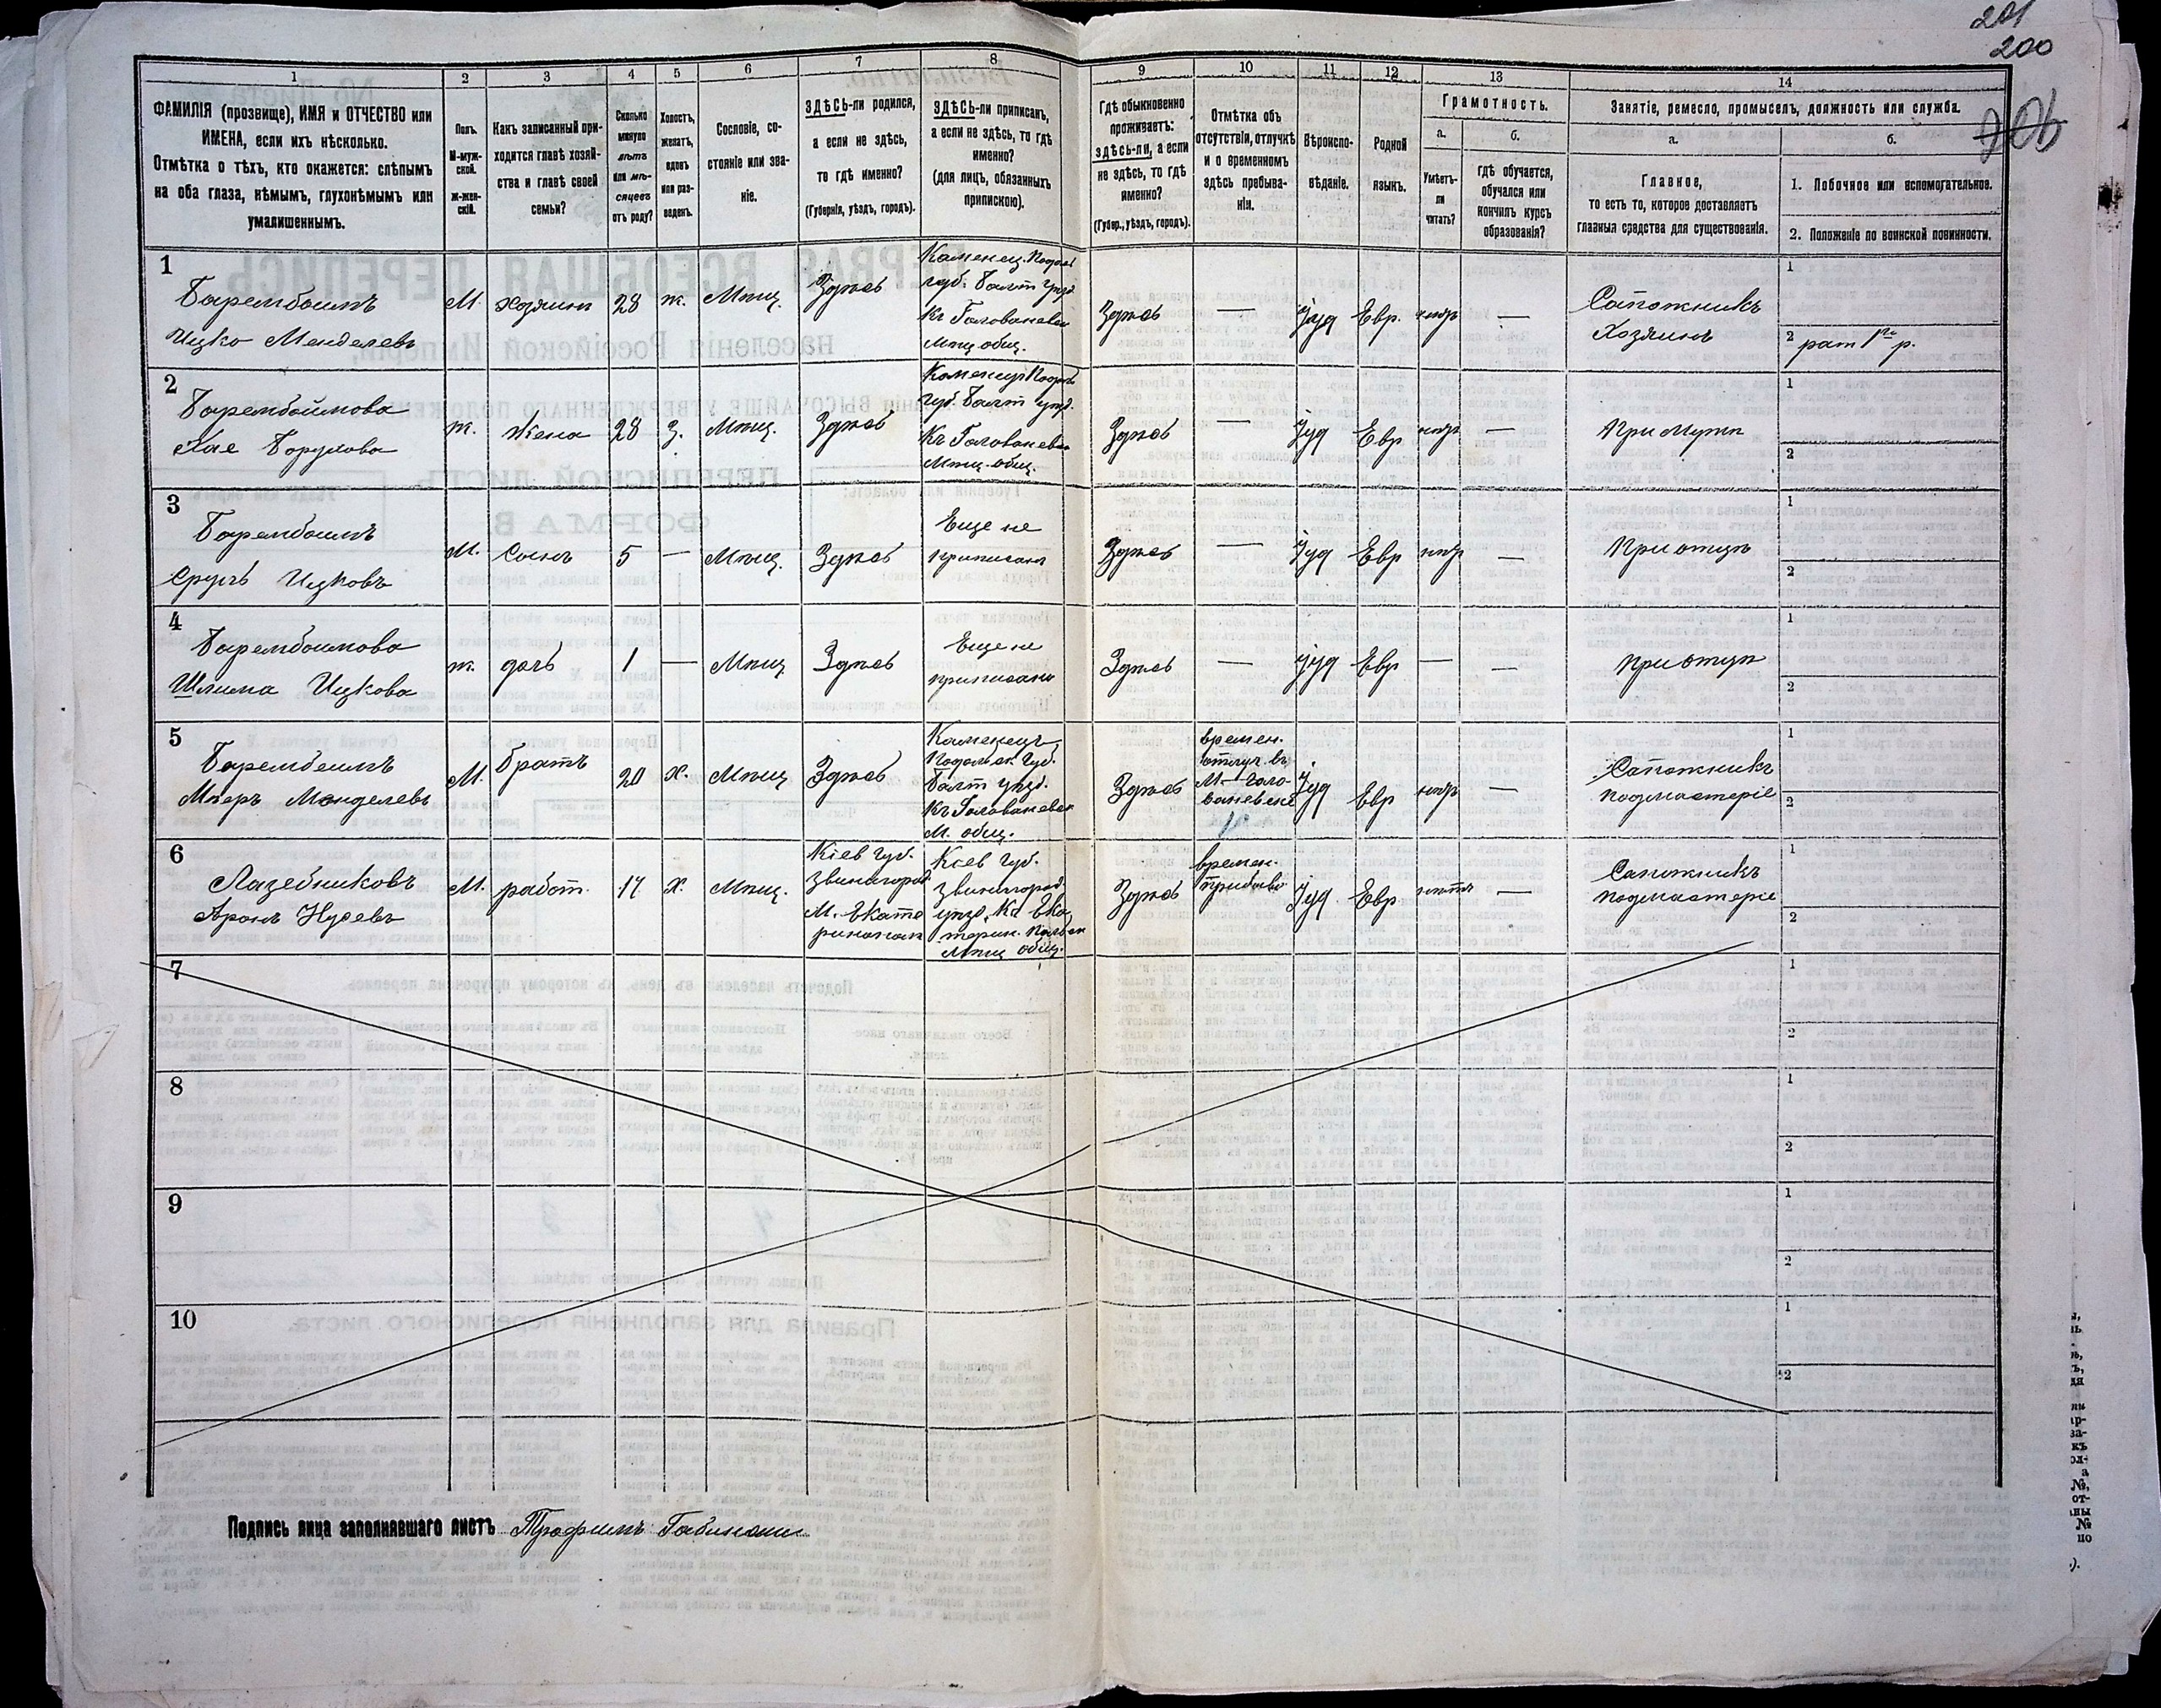 201
200
1 2 3 4 5 6 7 8 9 10 11 12 13 14
ФАМИЛІЯ (прозвище), ИМЯ и ОТЧЕСТВО или
ИМЕНА, если ихъ нѣсколько.
Отмѣтка о тѣхъ, кто окажется: слѣпымъ
на оба глаза, нѣмымъ, глухонѣмымъ или
умалишеннымъ.
Полъ.
М-муж-
ской.
Ж-жен-
скій.
Какъ записанный при-
ходится главѣ хозяй-
ства и главѣ своей
семьи?
Сколько
минуло
лѣтъ
или мѣ-
сяцевъ
отъ роду?
Холостъ,
женатъ,
вдовъ
или раз-
веденъ.
Сословіе, со-
стояніе или зва-
ніе.
ЗДѢСЬ-ли родился,
а если не здѣсь,
то гдѣ именно?
(Губернія, уѣздъ, городъ).
ЗДѢСЬ-ли приписанъ,
а если не здѣсь, то гдѣ
именно?
(для лицъ, обязанныхъ
припискою).
Гдѣ обыкновенно
проживаетъ:
здѣсь-ли, а если
не здѣсь, то гдѣ
именно?
(Губер., уѣздъ, городъ).
Отмѣтка объ
отсутствіи, отлучкѣ
и о временномъ
здѣсь пребыва-
ніи.
Вѣроиспо-
вѣданіе.
Родной
языкъ.
Грамотность.
а.
Умѣетъ-
ли
читать?
б.
гдѣ обучается,
обучался или
кончилъ курсъ
образованія?
Занятіе, ремесло, промыселъ, должность или служба.
а.
Главное,
то есть то, которое доставляетъ
главныя средства для существованія.
б.
1. Побочное или вспомогательное.
2. Положеніе по воинской повинности.
1
Барембоимъ
Ицко Менделевъ
М. хозяинъ 28 ж. Мѣщ. Здѣсь
Каменец. Подол
губ. Балт уѣзд.
Къ Голованевск
Мѣщ общ.
Здѣсь — Іуд Евр. нѣтъ —
Сапожникъ
Хозяинъ
1
2 рат 1го р.
2
Барембоимова
Хае Борухова
ж. Жена 28 з. Мѣщ. Здѣсь
Каменец Подол
губ. Балт уѣзд.
Къ Голованевск
Мѣщ. общ.
Здѣсь — Іуд Евр нѣтъ —
При Мужѣ
1
2
3
Барембоимъ
Сруль Ицковъ
М. Сынъ 5 — Мѣщ. Здѣсь
Еще не
приписанъ
Здѣсь — Іуд Евр нѣтъ —
При отцѣ
1
2
4
Барембоимова
Шлима Ицкова
ж. дочь 1 — Мѣщ Здѣсь
Еще не
приписана
Здѣсь — Іуд Евр — —
при отцѣ
1
2
5
Барембоимъ
Мееръ Менделевъ
М. братъ 20 х. Мѣщ Здѣсь
Каменецъ
Подольск. Губ.
Балт уѣзд.
Къ Голованевск
М. общ.
Здѣсь
времен.
отлуч. въ
М. Голо-
ваневске
Іуд Евр нѣтъ —
Сапожникъ
подмастеріе
1
2
6
Лазебниковъ
Аронъ Нусевъ
М. работ. 17 х. Мѣщ.
Кіев Губ.
Звенигород
М. Екате
ринополь
Кіев Губ.
Звенигород
уѣзд. Къ Ека
терин. польск
Мѣщ общ.
Здѣсь
времен.
прибыв
Іуд Евр нѣтъ —
Сапожникъ
подмастеріе
1
2
7
1
2
8
1
2
9
1
2
10
1
2
Подпись лица заполнявшаго листъ Трофимъ